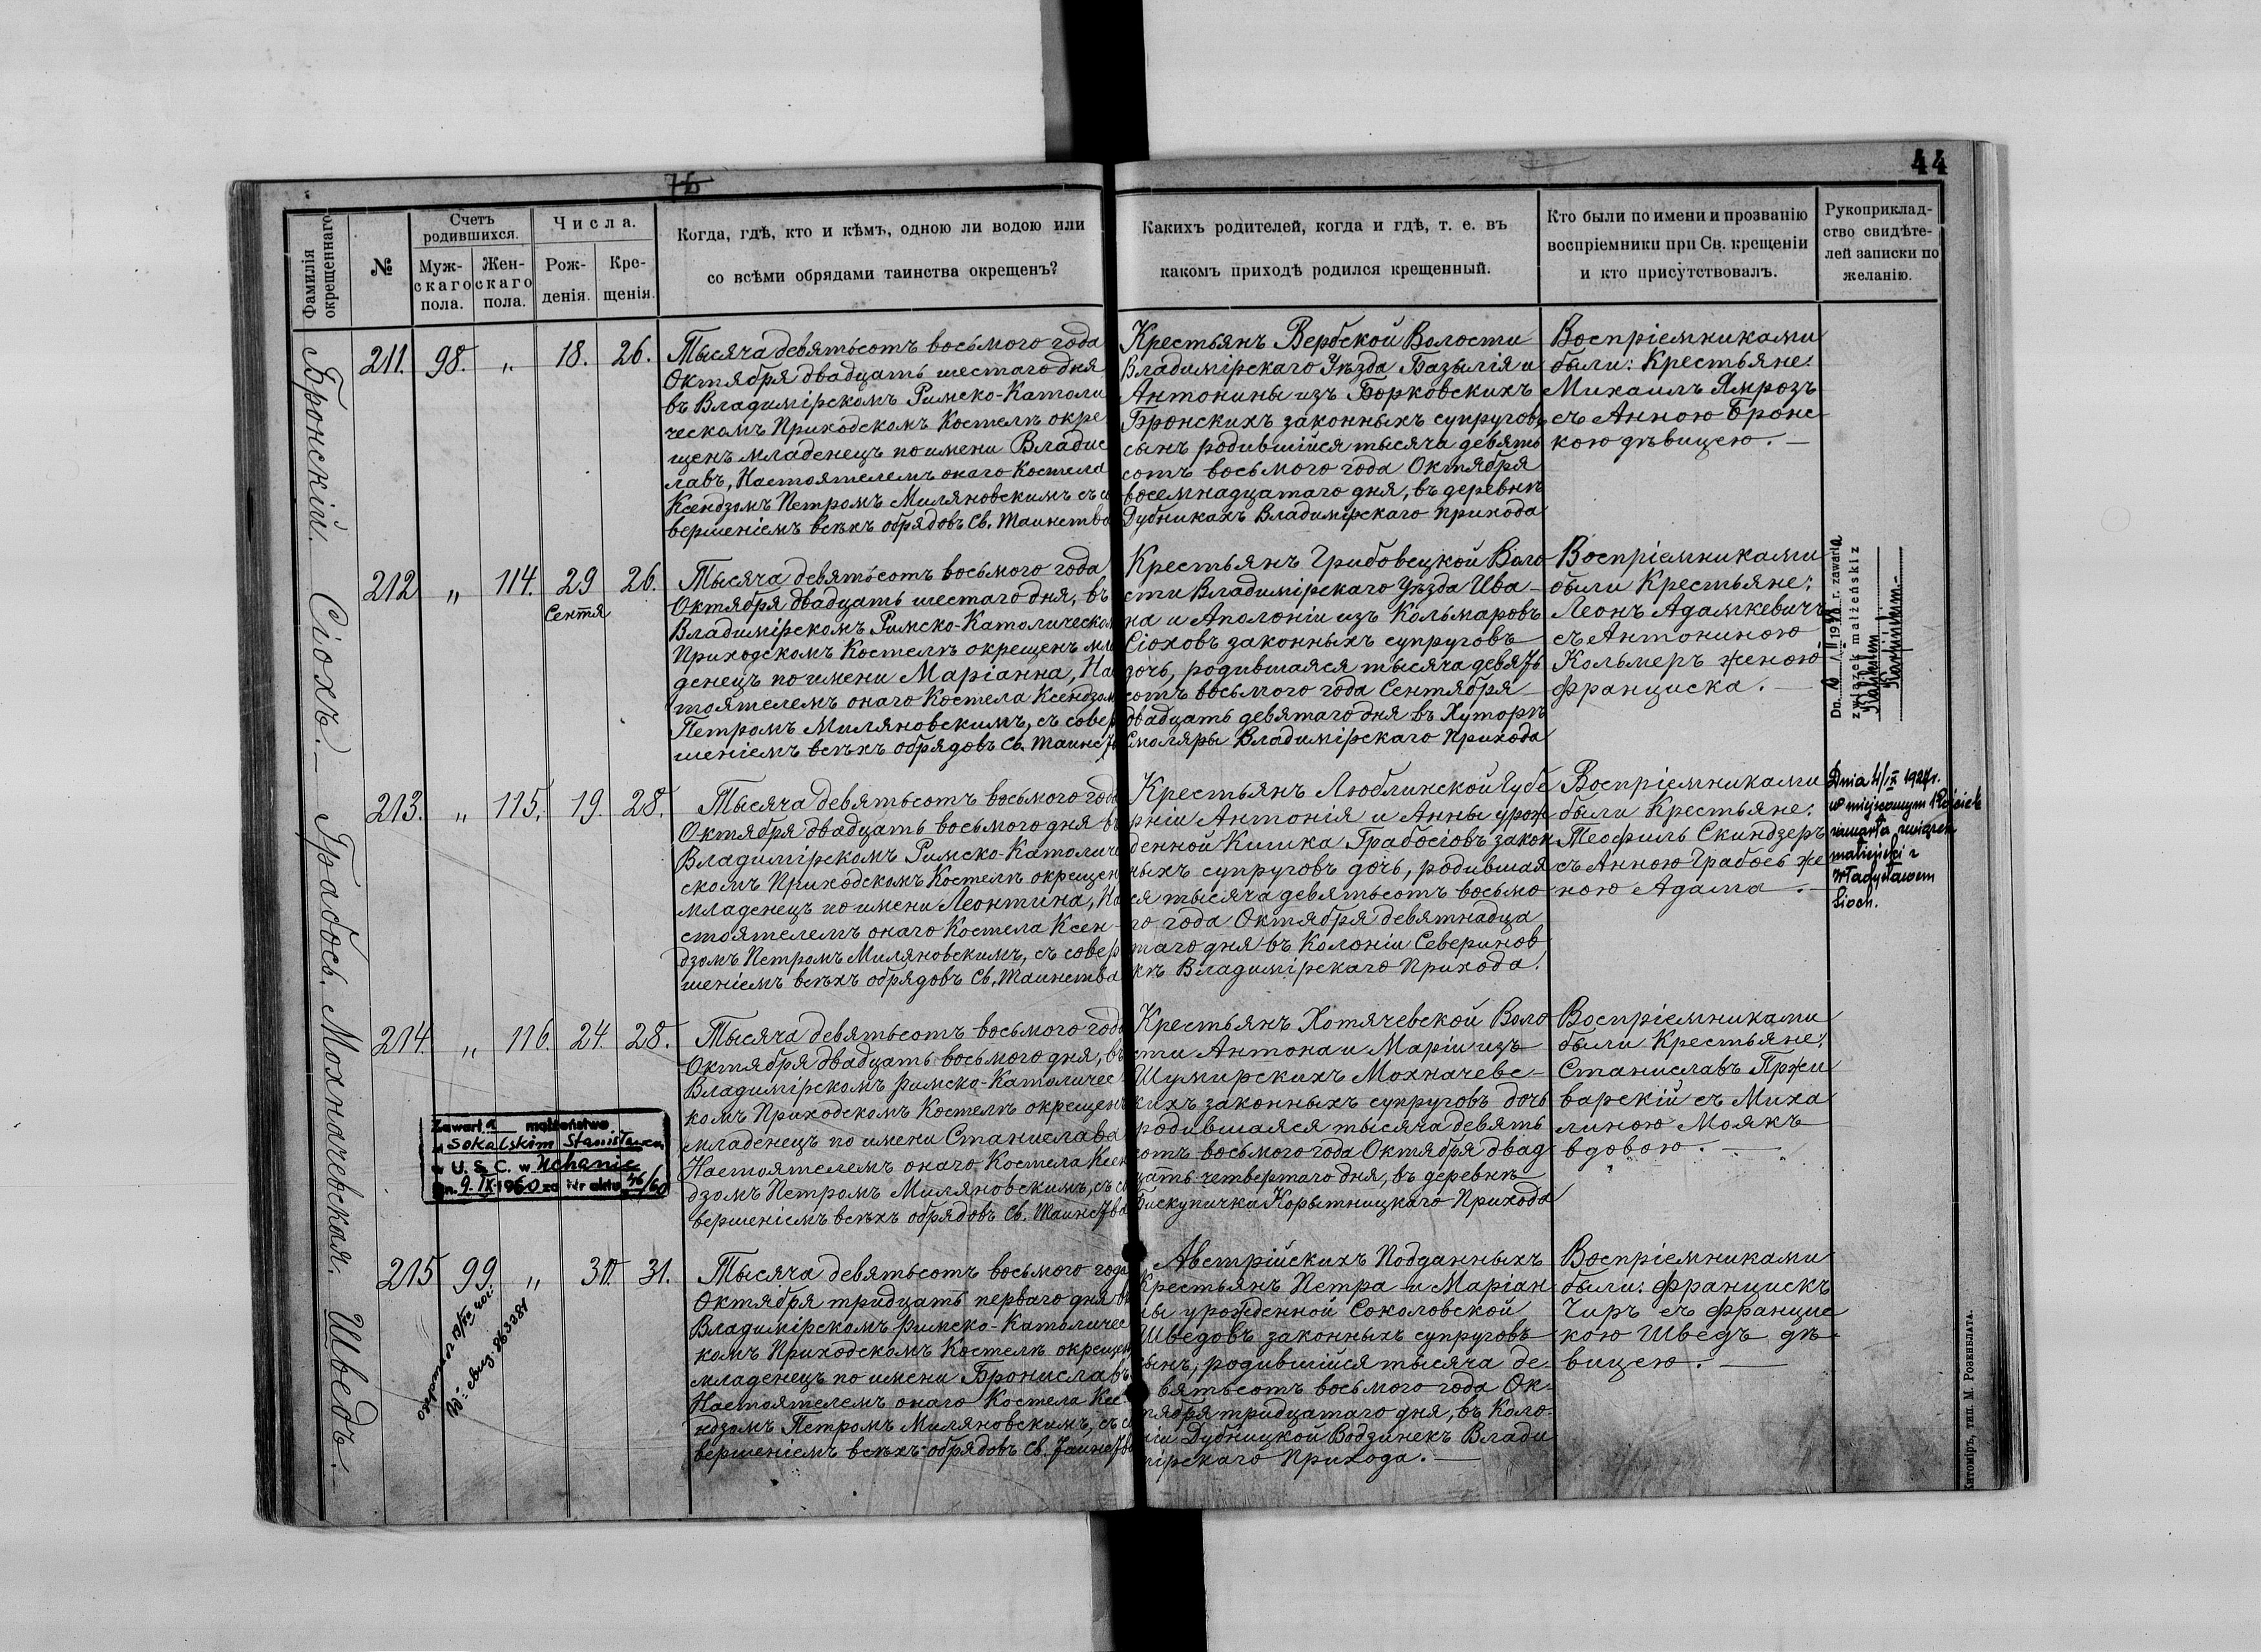 76
44
Фамилія окрещеннаго
№
Счетъ родившихся.
Муж-
скаго
пола.
Жен-
скаго
пола.
Числа.
Рож-
денія.
Кре-
щенія.
Когда, гдѣ, кто и кѣмъ, одною ли водою или
со всѣми обрядами таинства окрещенъ?
Какихъ родителей, когда и гдѣ, т. е. въ
какомъ приходѣ родился крещенный.
Кто были по имени и прозванію
воспріемники при Св. крещеніи
и кто присутствовалъ.
Рукоприклад-
ство свидѣте-
лей записки по
желанію.
Бронскій.
211. 98. „ 18. 26.
Тысяча девятьсотъ восьмого года
Октября двадцать шестаго дня
въ Владимірскомъ Римско-Католи
ческомъ Приходскомъ Костелѣ окре
щенъ младенецъ по имени Владис
лавъ, Настоятелемъ онаго Костела
Ксендзомъ Петромъ Миляновскимъ съ со
вершеніемъ всѣхъ обрядовъ Св. Таинства
Крестьянъ Вербской Волости
Владимірскаго Уѣзда Базылія и
Антонины изъ Борковскихъ
Бронскихъ законныхъ супруговъ
сынъ родившійся тысяча девять
сотъ восьмого года Октября
восемнадцатаго дня, въ деревнѣ
Дубникахъ Владимірскаго прихода
Воспріемниками
были: Крестьяне:
Михаилъ Ямрозъ
съ Анною Бронс
кою дѣвицею. —
Сіохъ. —
212 „ 114. 29 26.
Сентя
Тысяча девятьсотъ восьмого года
Октября двадцать шестаго дня, въ
Владимірскомъ Римско-Католическом
Приходскомъ Костелѣ окрещенъ мла
денецъ по имени Маріанна, Нас
тоятелемъ онаго Костела Ксендзом
Петромъ Миляновскимъ, съ совер
шеніемъ всѣхъ обрядовъ Св. Таинств
Крестьянъ Грибовецкой Воло
сти Владимірскаго Уѣзда Ива-
на и Аполоніи изъ Кольмаровъ
Сіоховъ законныхъ супруговъ
дочь, родившаяся тысяча девять
сотъ восьмого года Сентября
двадцать девятаго дня въ Хуторѣ
Смоляры Владимірскаго Прихода
Воспріемниками
были Крестьяне:
Леонъ Адамкевичъ
съ Антониною
Кольмеръ женою
Франциска. —
Dn. II 19 r. zawarła
związek małżeński z
Грабось.
213. „ 115. 19. 28.
Тысяча девятьсотъ восьмого года
Октября двадцать восьмого дня въ
Владимірскомъ Римско-Католиче
скомъ Приходскомъ Костелѣ окрещен
младенецъ по имени Леонтина, На
стоятелемъ онаго Костела Ксен-
дзомъ Петромъ Миляновскимъ, съ совер
шеніемъ всѣхъ обрядовъ Св. Таинства
Крестьянъ Люблинской Губе
рніи Антонія и Анны урож
денной Кишка Грабосіовъ закон
ныхъ супруговъ дочь, родившая
ся тысяча девятьсотъ восьмо
го года Октября девятнадца
таго дня въ Колоніи Северинов
кѣ Владимірскаго Прихода.
Воспріемниками
были Крестьяне:
Теофиль Скиндзеръ
съ Анною Грабось же
ною Адама. —
Dnia 4/IX 1927r.
w miejscowym Kościele
zawarła związek
małżeński z
Władysławem
Sioch.
Мохначевская.
214. „ 116. 24. 28.
Тысяча девятьсотъ восьмого года
Октября двадцать восьмого дня, въ
Владимірскомъ Римско-Католичес
комъ Приходскомъ Костелѣ окрещенъ
младенецъ по имени Станислава
Настоятелемъ онаго Костела Ксен
дзомъ Петромъ Миляновскимъ, съ со
вершеніемъ всѣхъ обрядовъ Св. Таинства
Крестьянъ Хотячевской Воло
сти Антона и Маріи изъ
Шумирскихъ Мохначевс-
кихъ законныхъ супруговъ дочь
родившаяся тысяча девять
сотъ восьмого года Октября двад
цать четвертаго дня, въ деревнѣ
Бискупичка Корытницкаго Прихода
Воспріемниками
были Крестьяне:
Станиславъ Пржи
варскій съ Миха
линою Моякъ
вдовою. —
Zawarła małżeństwo
z Sokalskim Stanisławem
w U. S. C. w Uchanie
Dn. 9. IX 1960 za Nr aktu 46/60
Шведъ. —
215 99. „ 30. 31.
Тысяча девятьсотъ восьмого года
Октября тридцать перваго дня въ
Владимірскомъ Римско-Католичес
комъ Приходскомъ Костелѣ окрещен
младенецъ по имени Брониславъ
Настоятелемъ онаго Костела Ксе
ндзомъ Петромъ Миляновскимъ, съ со
вершеніемъ всѣхъ обрядовъ Св. Таинства
Австрійскихъ Подданныхъ
Крестьянъ Петра и Маріан
ны урожденной Соколовской
Шведовъ законныхъ супруговъ
сынъ, родившійся тысяча де-
вятьсотъ восьмого года Ок-
тября тридцатаго дня, въ Коло-
ніи Дубницкой Водзинекъ Влади
мірскаго Прихода. —
Воспріемниками
были: Францискъ
Чиръ съ Францис
кою Шведъ дѣ-
вицею. —
863281
Житоміръ, тип. М. Розенблата.